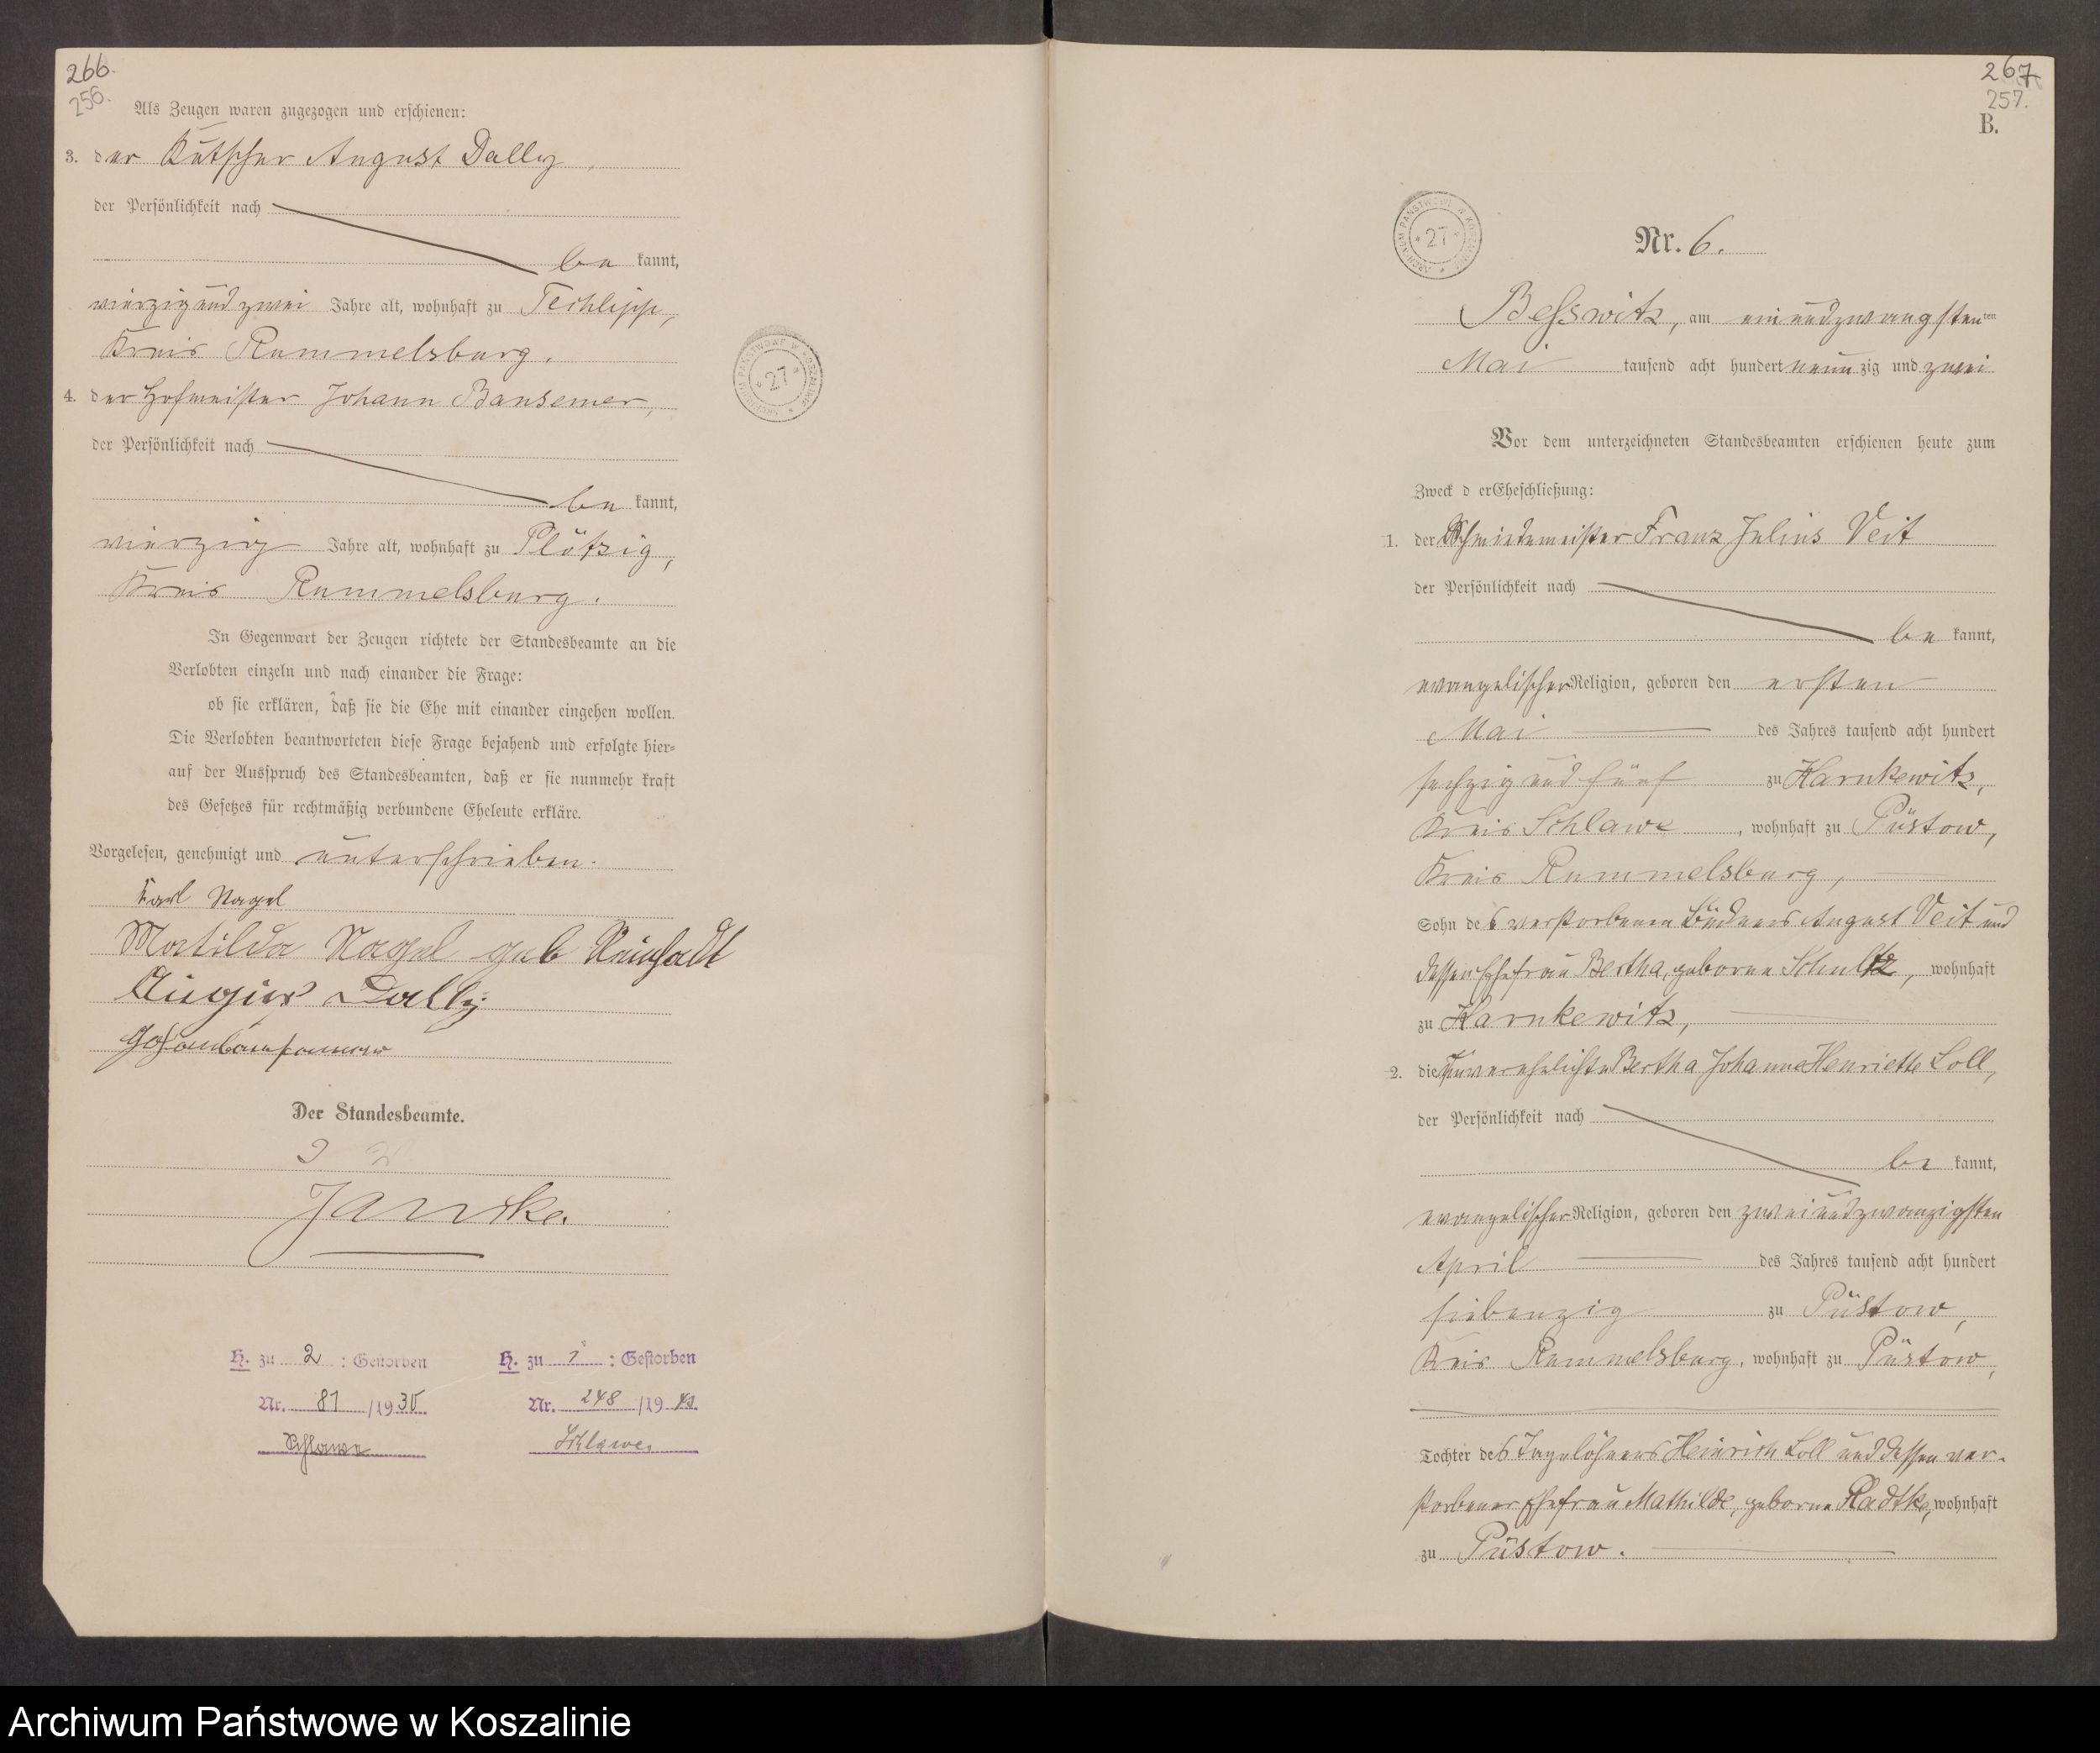 266.
256.
Als Zeugen waren zugezogen und erschienen:
3. der Kutscher August Dally,
der Persönlichkeit nach
be kannt,
vierzig und zwei Jahre alt, wohnhaft zu Techlipp,
Kreis Rummelsburg.
4. der Hofmeister Johann Bansemer,
der Persönlichkeit nach
be kannt,
vierzig Jahre alt, wohnhaft zu Plötzig,
Kreis Rummelsburg.
In Gegenwart der Zeugen richtete der Standesbeamte an die
Verlobten einzeln und nach einander die Frage:
ob sie erklären, daß sie die Ehe mit einander eingehen wollen.
Die Verlobten beantworteten diese Frage bejahend und erfolgte hier-
auf der Ausspruch des Standesbeamten, daß er sie nunmehr kraft
des Gesetzes für rechtmäßig verbundene Eheleute erkläre.
Vorgelesen, genehmigt und unterschrieben.
Karl Nagel
Matilda Nagel geb
August Dally
Johan bansemer
Der Standesbeamte.
Janske.
H. zu 2 : Gestorben
Nr. 81 /1930
Schlawe
H. zu 1 : Gestorben
Nr. 248 /19
Schlawe.
ARCHIWUM PAŃSTWOWE W KOSZALINIE * 27 *
267
257.
B.
ARCHIWUM PAŃSTWOWE W KOSZALINIE * 27 *
Nr. 6.
Besswitz, am einundzwangsten ten
Mai tausend acht hundert neun zig und zwei
Vor dem unterzeichneten Standesbeamten erschienen heute zum
Zweck d er Eheschließung:
1. der Schmiedemeister Franz Julius Veit
der Persönlichkeit nach
be kannt,
evangelischer Religion, geboren den ersten
Mai des Jahres tausend acht hundert
sechzig und fünf zu Karnkewitz,
Kreis Schlawe, wohnhaft zu Püstow,
Kreis Rummelsburg,
Sohn des verstorbenen Büdners August Veit und
dessen Ehefrau Bertha, geborne Schultz, wohnhaft
zu Karnkewitz,
2. die unverehelichte Bertha Johanne Henriette Loll,
der Persönlichkeit nach
be kannt,
evangelischer Religion, geboren den zweiundzwanzigsten
April des Jahres tausend acht hundert
siebenzig zu Püstow,
Kreis Rummelsburg, wohnhaft zu Püstow,
Tochter des Tagelöhners Heinrich Loll und dessen ver-
storbener Ehefrau Mathilde, geborne Radtke, wohnhaft
zu Püstow.
Archiwum Państwowe w Koszalinie